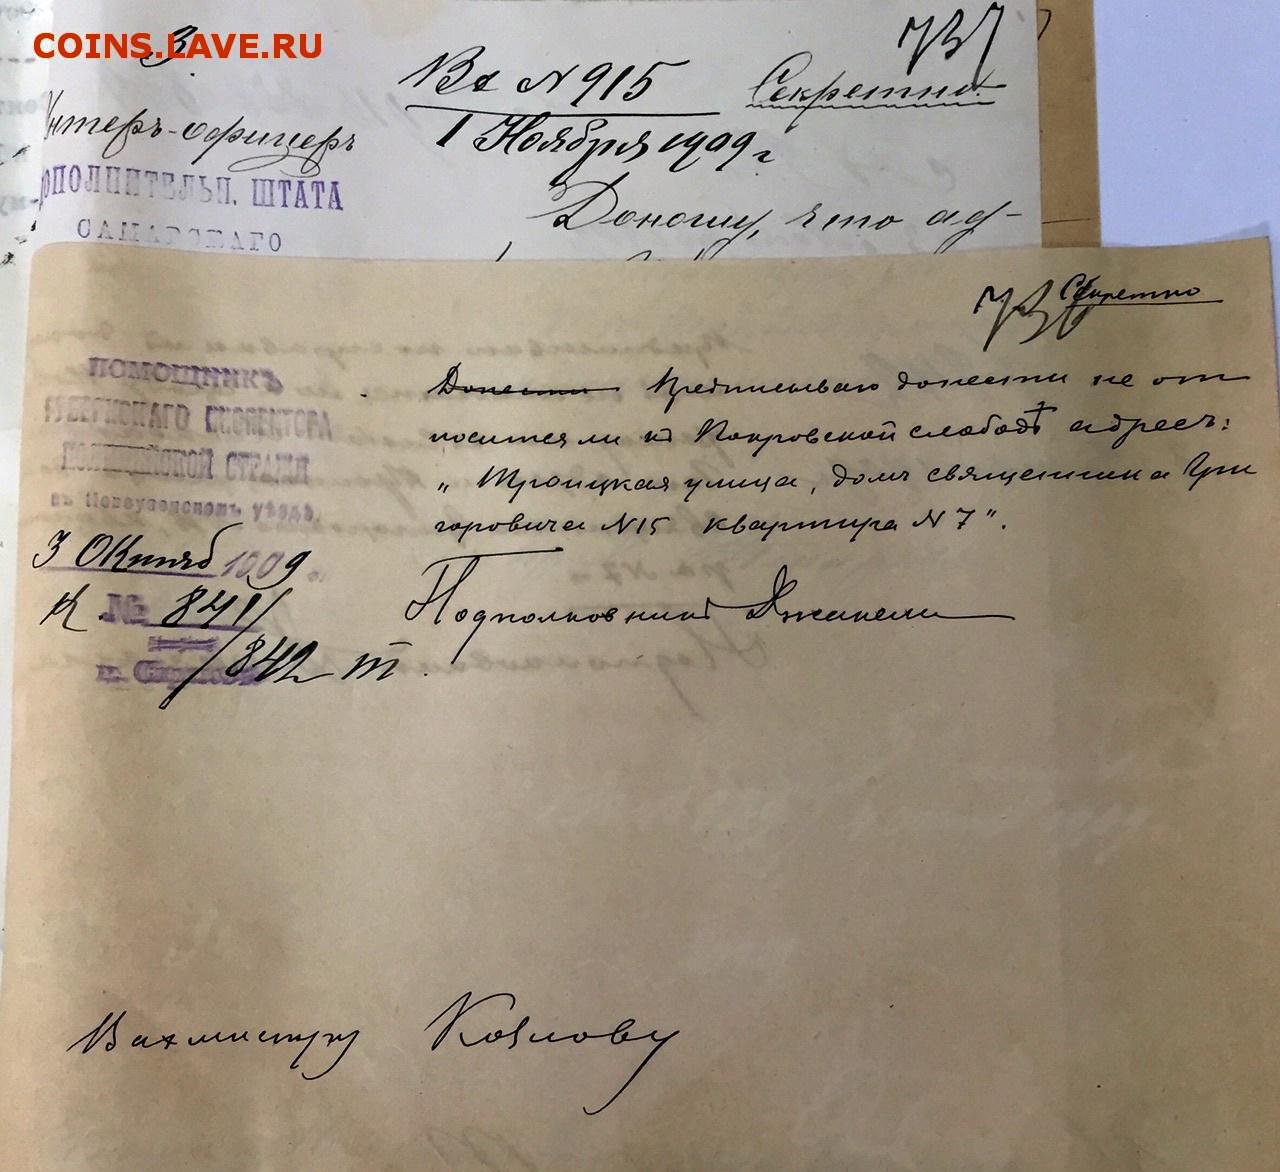 COINS.LAVE.RU
3.
737
Вх N 915
Секретно.
1 Ноября 1909 г
Унтеръ-офицеръ
ДОПОЛНИТЕЛЬН. ШТАТА
САМАРСКАГО
Доношу, что ад-
Секретно
ПОМОЩНИКЪ
ГУБЕРНСКАГО ИНСПЕКТОРА
ПОЛИЦЕЙСКОЙ СТРАЖИ
въ Новоузенскомъ уѣздѣ.
3 Октяб 1909 г.
К № 841/
/842 т.
Донести Предписываю донести не от
носится ли къ Покровской слободѣ адресъ:
„Троицкая улица, домъ священника Гри
горовича N15 квартира N7".
Подполковникъ
Вахмистру Козлову